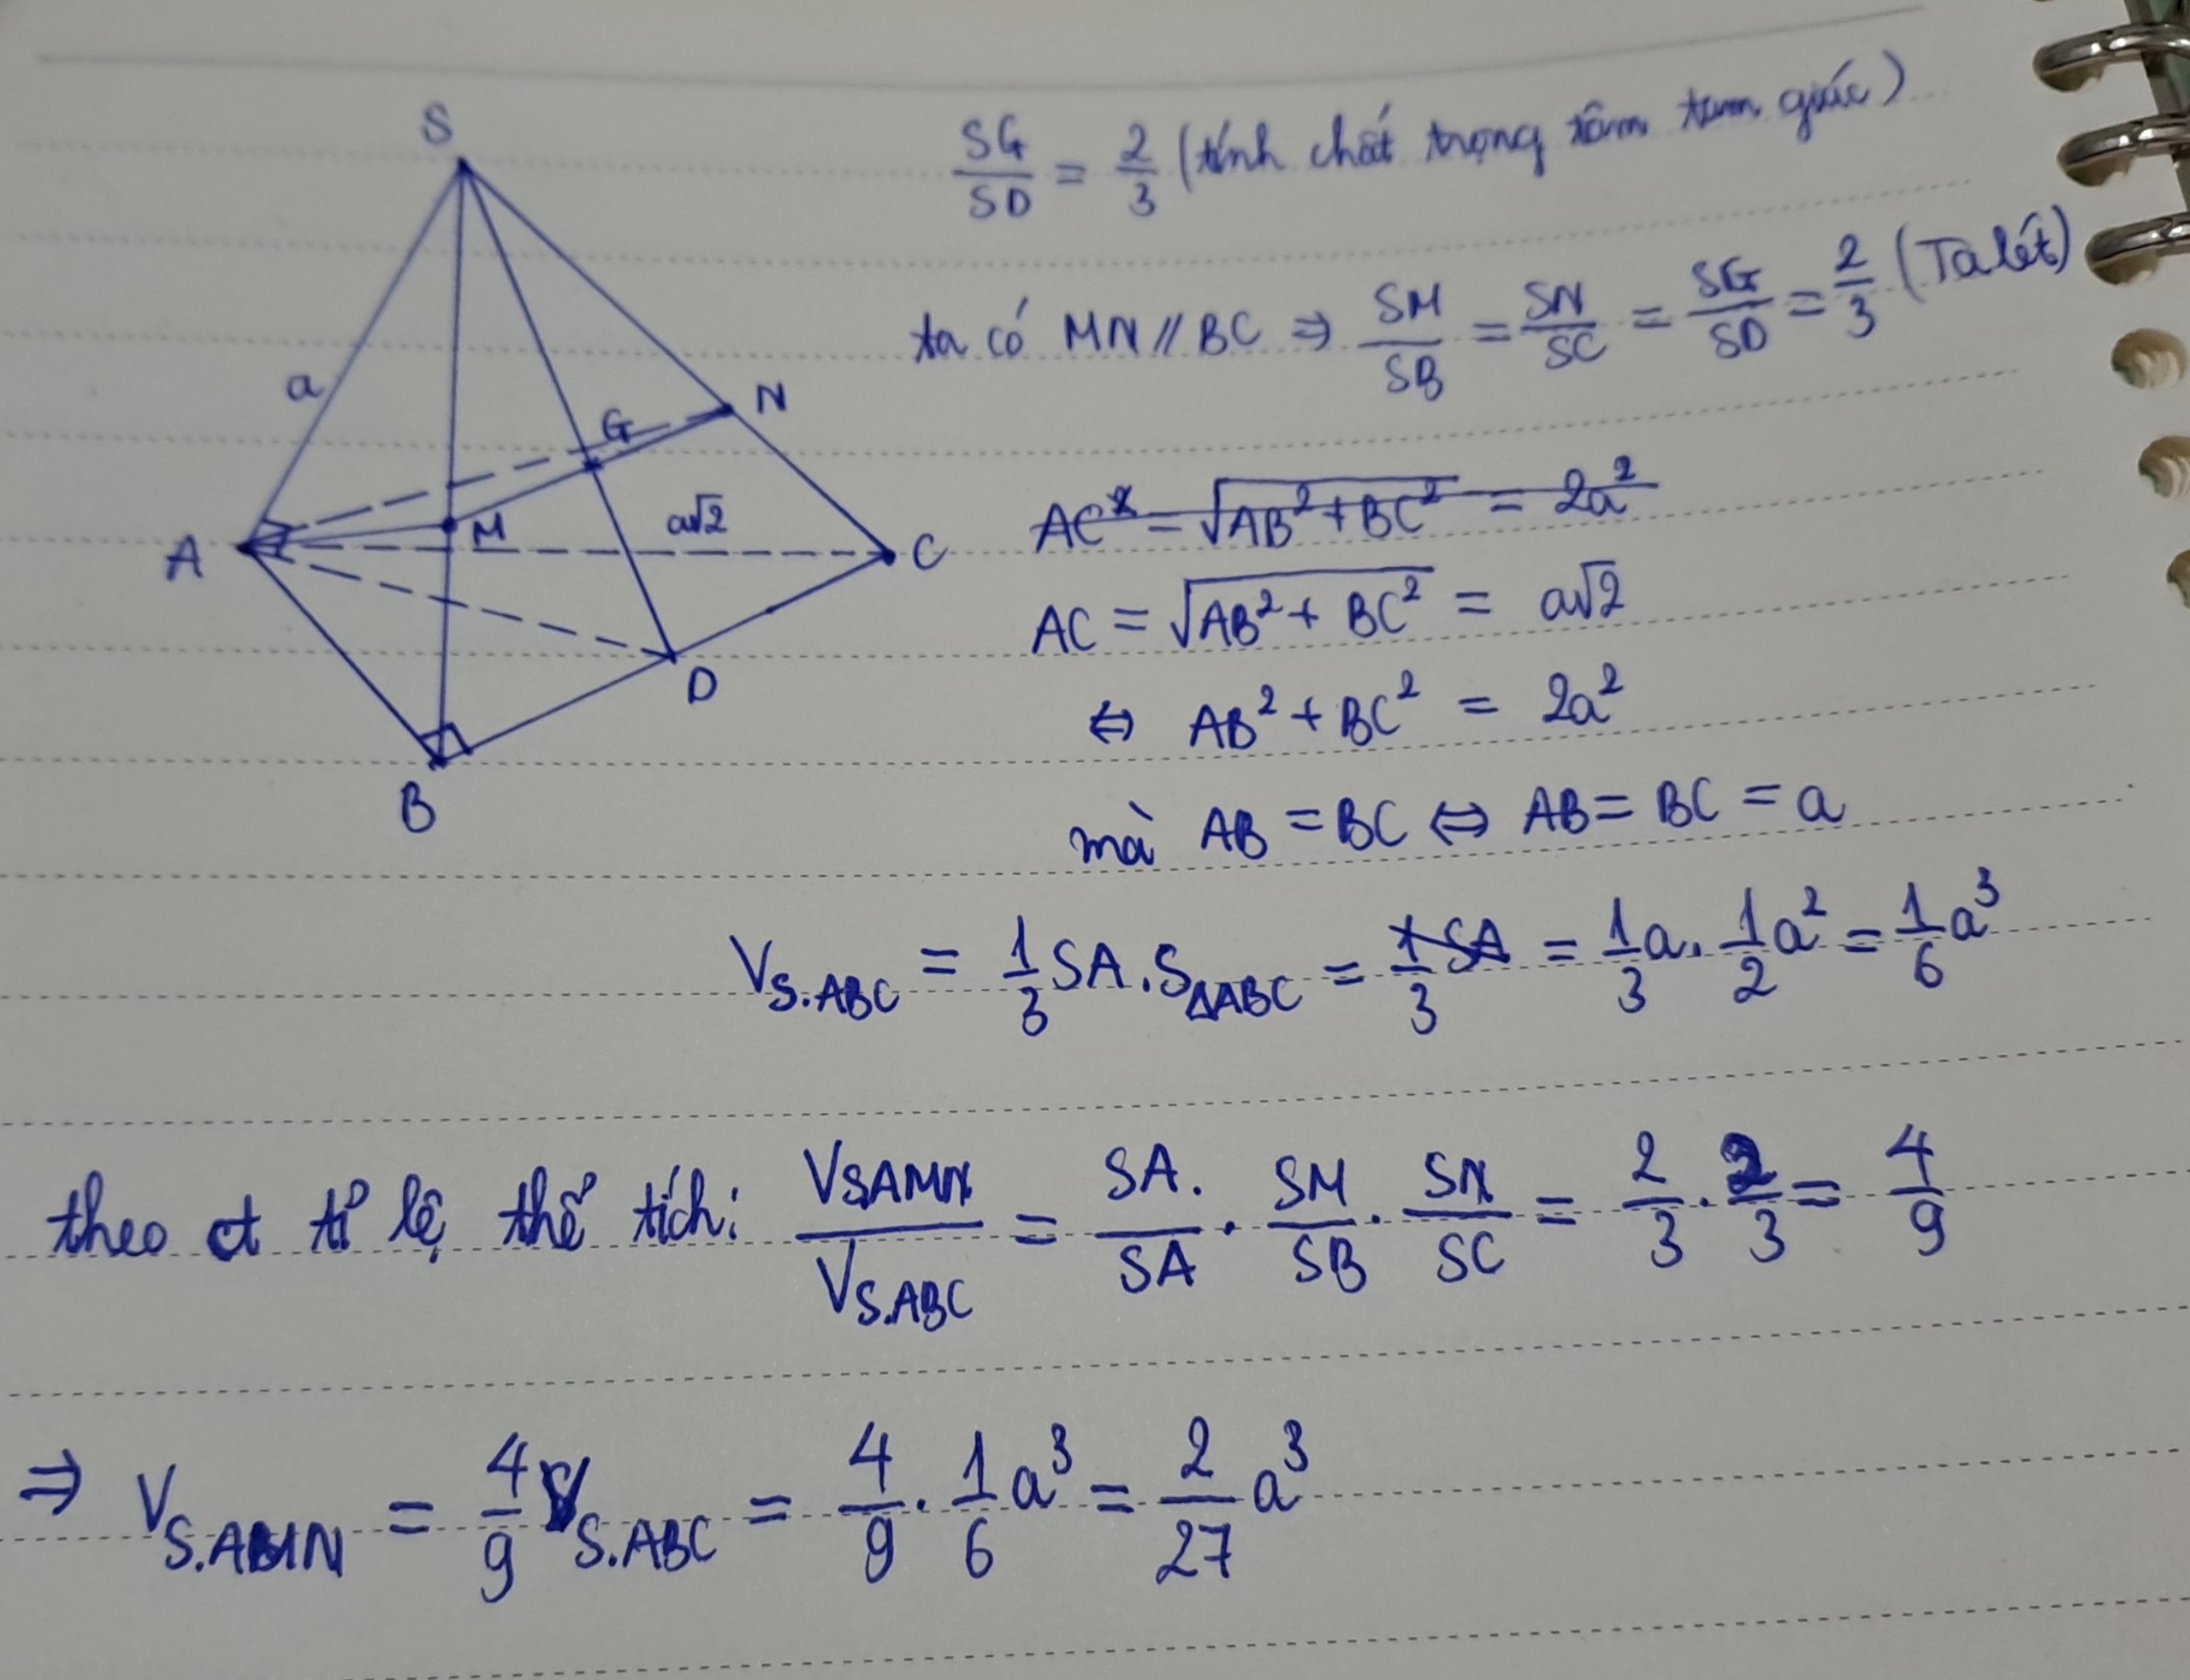 S
a
A
M
G
N
a√2
C
D
B
SG/SD = 2/3 (tính chất trọng tâm tam giác)
ta có MN // BC ⇒ SM/SB = SN/SC = SG/SD = 2/3 (Ta lét)
AC² = √(AB² + BC²) = 2a²
AC = √(AB² + BC²) = a√2
⇔ AB² + BC² = 2a²
mà AB = BC ⇔ AB = BC = a
V_S.ABC = 1/3 SA . S_ΔABC = 1/3 SA = 1/3 a . 1/2 a² = 1/6 a³
theo ct tỉ lệ thể tích: V_SAMN / V_S.ABC = SA. / SA . SM/SB . SN/SC = 2/3 . 2/3 = 4/9
⇒ V_S.AMN = 4/9 V_S.ABC = 4/9 . 1/6 a³ = 2/27 a³